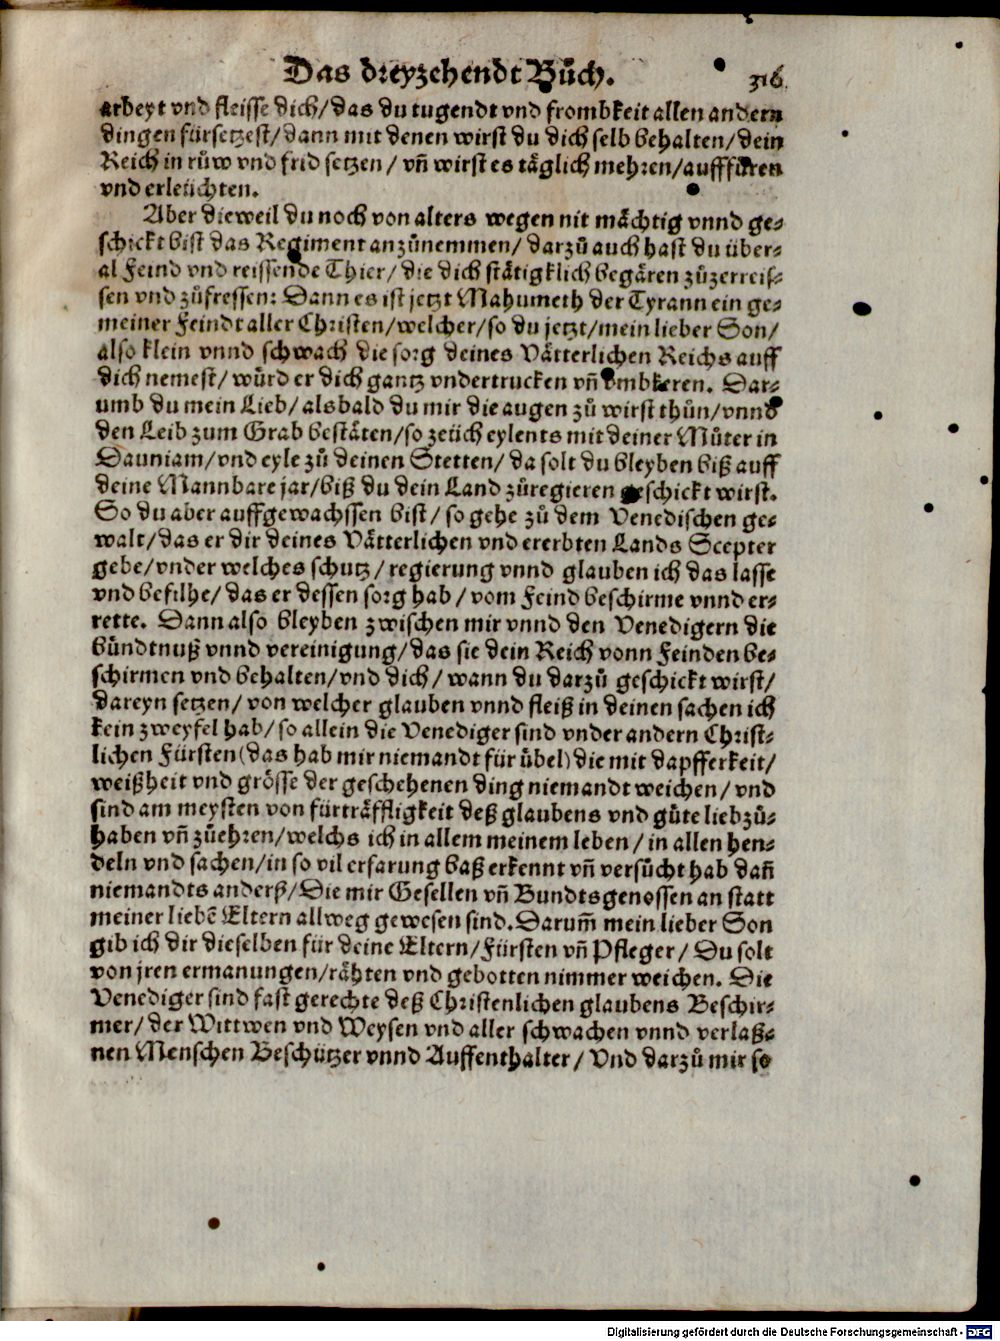 Das dreyzehendt Bůch. 316
arbeyt vnd fleisse dich/das du tugendt vnd frombkeit allen andern
dingen fürsetzest/dann mit denen wirst du dich selb behalten/dein
Reich in rüw vnd frid setzen/ vn̄ wirst es täglich mehren/aufffüren
vnd erleüchten.
Aber dieweil du noch von alters wegen nit mächtig vnnd ge⸗
schickt bist das Regiment anzůnemmen/ darzů auch hast du über⸗
al Feind vnd reissende Thier/ die dich stätigklich begären zůzerreis⸗
sen vnd zůfressen: Dann es ist jetzt Mahumeth der Tyrann ein ge⸗
meiner Feindt aller Christen/welcher/so du jetzt/mein lieber Son/
also klein vnnd schwach die sorg deines Vätterlichen Reichs auff
dich nemest/ würd er dich gantz vndertrucken vn̄ vmbkeren. Dar⸗
umb du mein Lieb/ alsbald du mir die augen zů wirst thůn/vnnd
den Leib zum Grab bestäten/so zeüch eylents mit deiner Můter in
Dauniam/vnd eyle zů deinen Stetten/ da solt du bleyben biß auff
deine Mannbare jar/biß du dein Land zůregieren geschickt wirst.
So du aber auffgewachssen bist/ so gehe zů dem Venedischen ge⸗
walt/das er dir deines Vätterlichen vnd ererbten Lands Scepter
gebe/vnder welches schutz/ regierung vnnd glauben ich das lasse
vnd befilhe/ das er dessen sorg hab/ vom Feind beschirme vnnd er⸗
rette. Dann also bleyben zwischen mir vnnd den Venedigern die
bündtnuß vnnd vereinigung/das sie dein Reich vonn Feinden be⸗
schirmen vnd behalten/vnd dich/ wann du darzů geschickt wirst/
dareyn setzen/ von welcher glauben vnnd fleiß in deinen sachen ich
kein zweyfel hab/ so allein die Venediger sind vnder andern Christ⸗
lichen Fürsten(das hab mir niemandt für übel)die mit dapfferkeit/
weißheit vnd grösse der geschehenen ding niemandt weichen/ vnd
sind am meysten von fürträffligkeit deß glaubens vnd güte liebzů⸗
haben vn̄ zůehren/welchs ich in allem meinem leben/ in allen hen⸗
deln vnd sachen/in so vil erfarung baß erkennt vn̄ versůcht hab dan̄
niemandts anderß/Die mir Gesellen vn̄ Bundtsgenossen an statt
meiner liebē Eltern allweg gewesen sind. Darum̄ mein lieber Son
gib ich dir dieselben für deine Eltern/Fürsten vn̄ Pfleger/ Du solt
von jren ermanungen/rähten vnd gebotten nimmer weichen. Die
Venediger sind fast gerechte deß Christenlichen glaubens Beschir⸗
mer/ der Wittwen vnd Weysen vnd aller schwachen vnnd verlaß⸗
nen Menschen Beschützer vnnd Auffenthalter/ Vnd darzů mir so
Digitalisierung gefördert durch die Deutsche Forschungsgemeinschaft - DFG